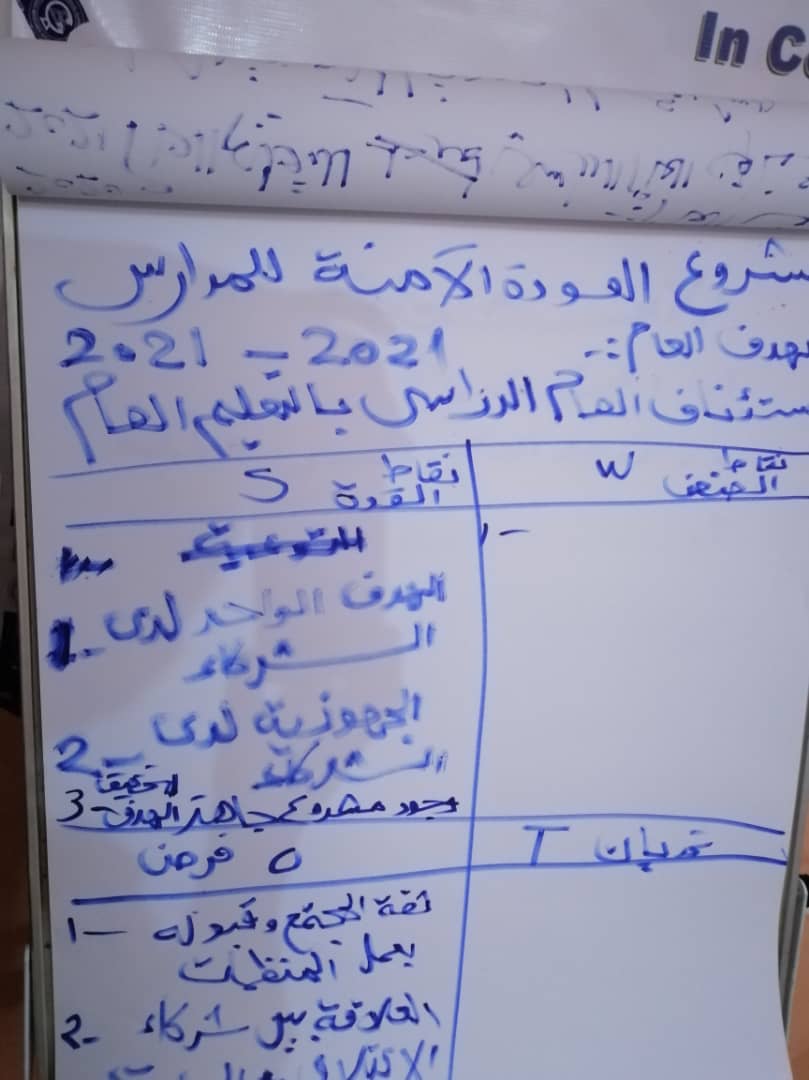 In C
شروع العودة الآمنة للمدارس
هدف العام :- 2021 - 2021
ستئناف العام الدراسي بالتعليم العام
نقاط القوة S
نقاط الضعف W
1-
1- الهدف الواحد لدى
الشركاء
2- الجهوزية لدى
الشركاء
3- وجود مشروع جاهز لتحقيق الهدف
فرص O
تحديات T
1- ثقة المجتمع وقبوله
بعمل المنظمات
2- العلاقة بين شركاء